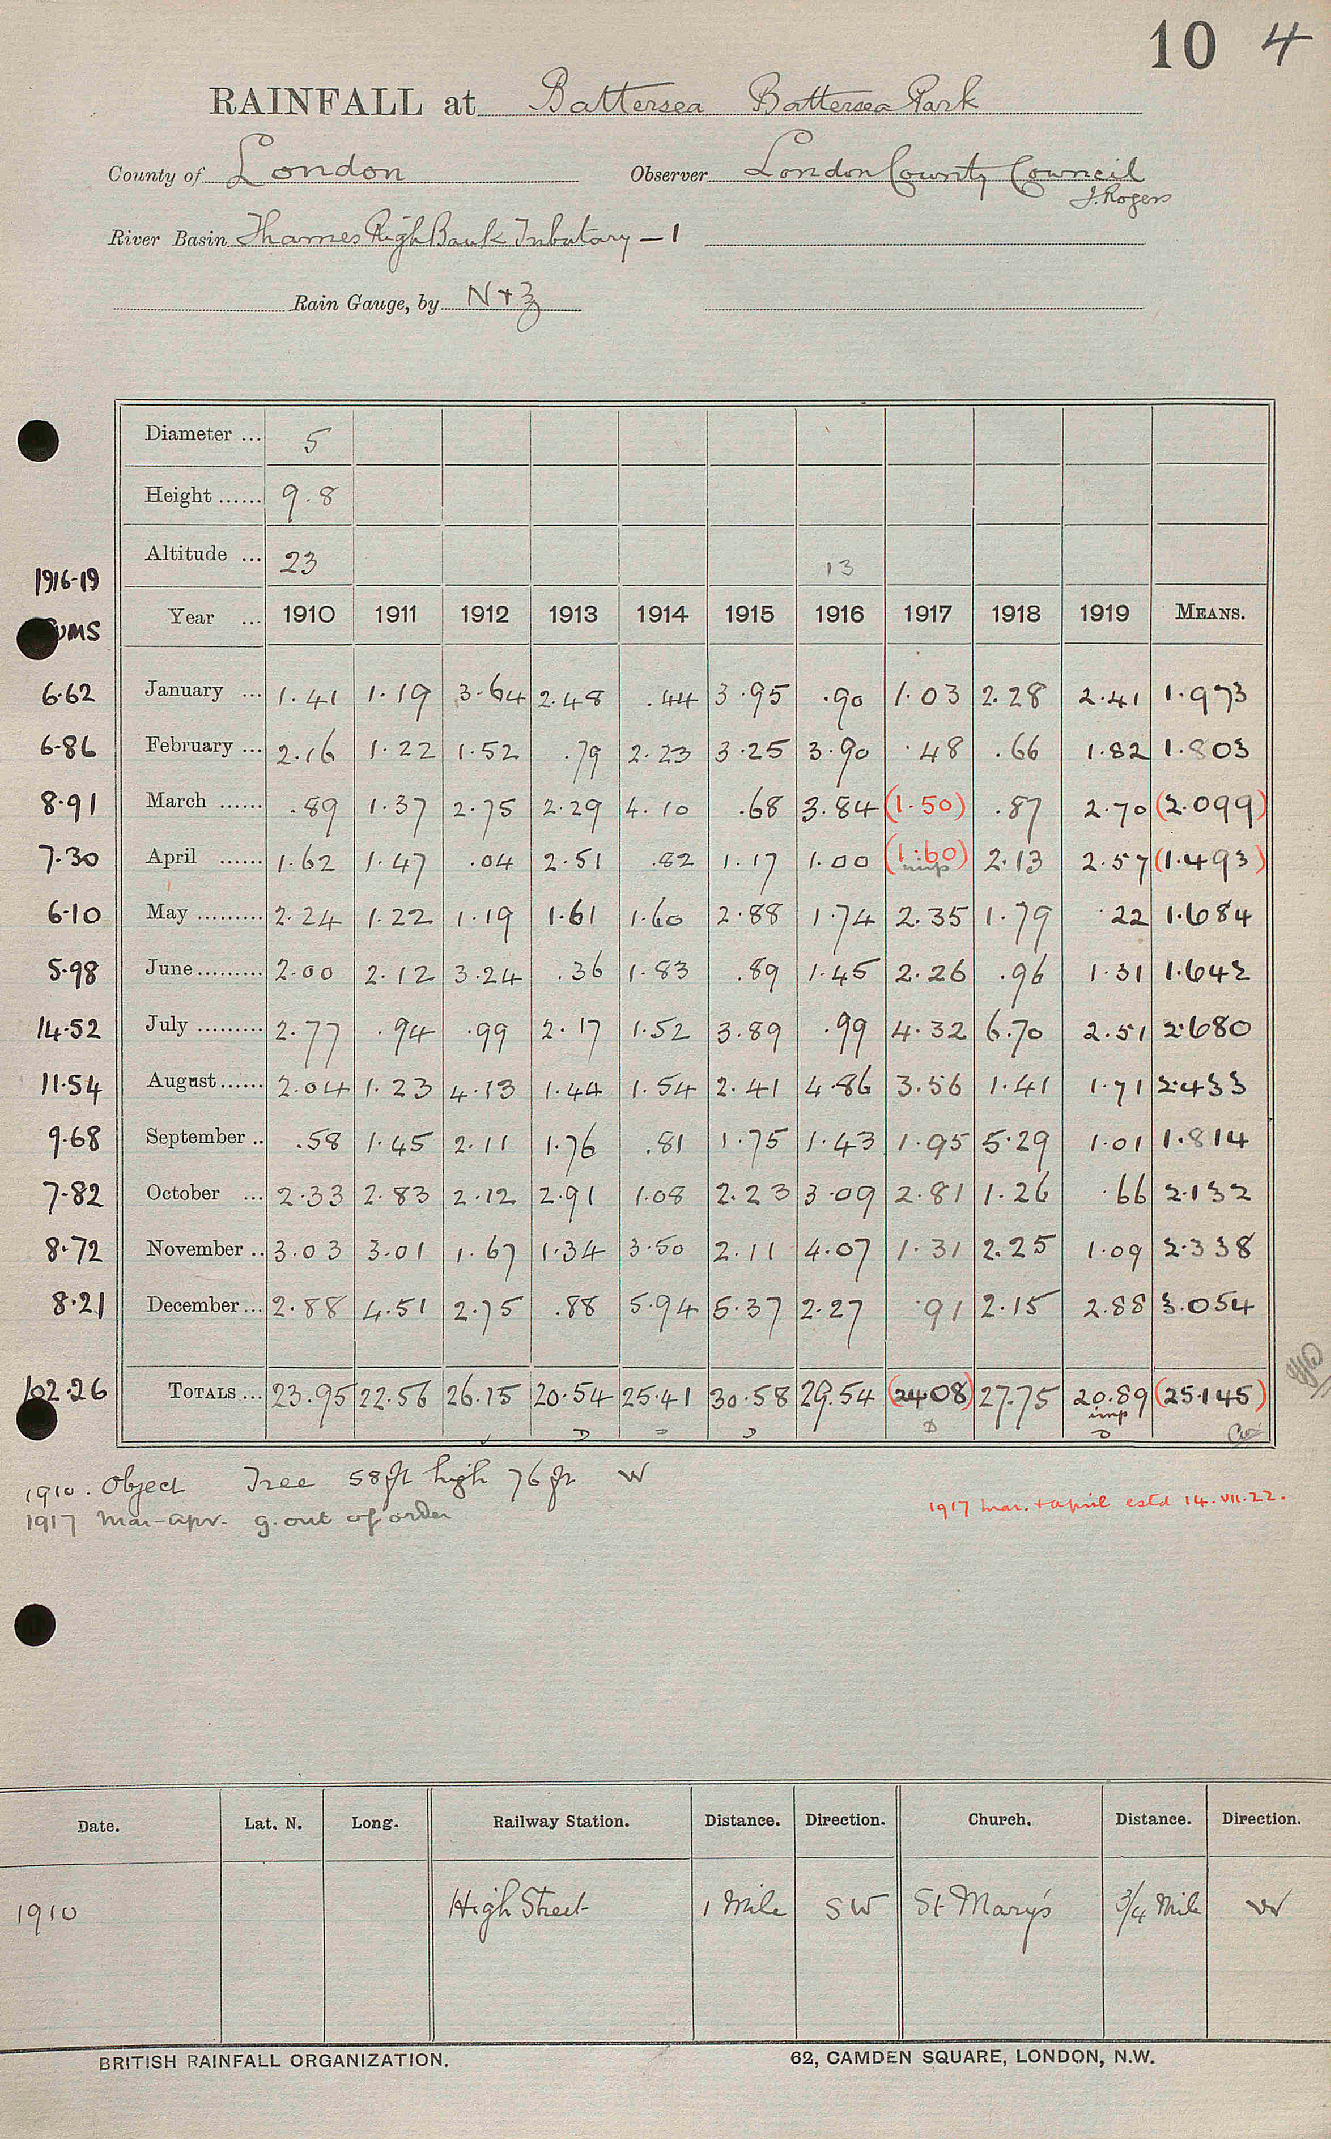 10 4
RAINFALL at Battersea Battersea Park
County of London Observer London County Council
J. Rogers
River Basin Thames Righ Bank Tributary - 1
Rain Gauge, by N + Z
Diameter ... 5
Height ...... 9.8
Altitude ... 23 13
1916-19
UMS
Year ... 1910 1911 1912 1913 1914 1915 1916 1917 1918 1919 MEANS.
6.62 January ... 1.41 1.19 3.64 2.48 .44 3.95 .90 1.03 2.28 2.41 1.973
6.86 February ... 2.16 1.22 1.52 .79 2.23 3.25 3.90 .48 .66 1.82 1.803
8.91 March ...... .89 1.37 2.75 2.29 4.10 .68 3.84 (1.50) .87 2.70 (2.099)
7.30 April ...... 1.62 1.47 .04 2.51 .82 1.17 1.00 (1.60) 2.13 2.57 (1.493)
imp
6.10 May ......... 2.24 1.22 1.19 1.61 1.60 2.88 1.74 2.35 1.79 .22 1.684
5.98 June ......... 2.00 2.12 3.24 .36 1.83 .89 1.45 2.26 .96 1.31 1.642
14.52 July ......... 2.77 .94 .99 2.17 1.52 3.89 .99 4.32 6.70 2.51 2.680
11.54 August ...... 2.04 1.23 4.13 1.44 1.54 2.41 4.86 3.56 1.41 1.71 2.433
9.68 September .. .58 1.45 2.11 1.76 .81 1.75 1.43 1.95 5.29 1.01 1.814
7.82 October ... 2.33 2.83 2.12 2.91 1.08 2.23 3.09 2.81 1.26 .66 2.132
8.72 November .. 3.03 3.01 1.67 1.34 3.50 2.11 4.07 1.31 2.25 1.09 2.338
8.21 December ... 2.88 4.51 2.75 .88 5.94 5.37 2.27 .91 2.15 2.88 3.054
102.26 TOTALS ... 23.95 22.56 26.15 20.54 25.41 30.58 29.54 (24.08) 27.75 20.89 (25.145)
imp
1910. Object Tree 58 ft high 76 ft W
1917 Mar-Apr. g. out of order
1917 Mar. + April estd 14.VII.22.
Date. Lat. N. Long. Railway Station. Distance. Direction. Church. Distance. Direction.
1910 High Street 1 Mile SW St Mary's 3/4 Mile W
BRITISH RAINFALL ORGANIZATION. 62, CAMDEN SQUARE, LONDON, N.W.